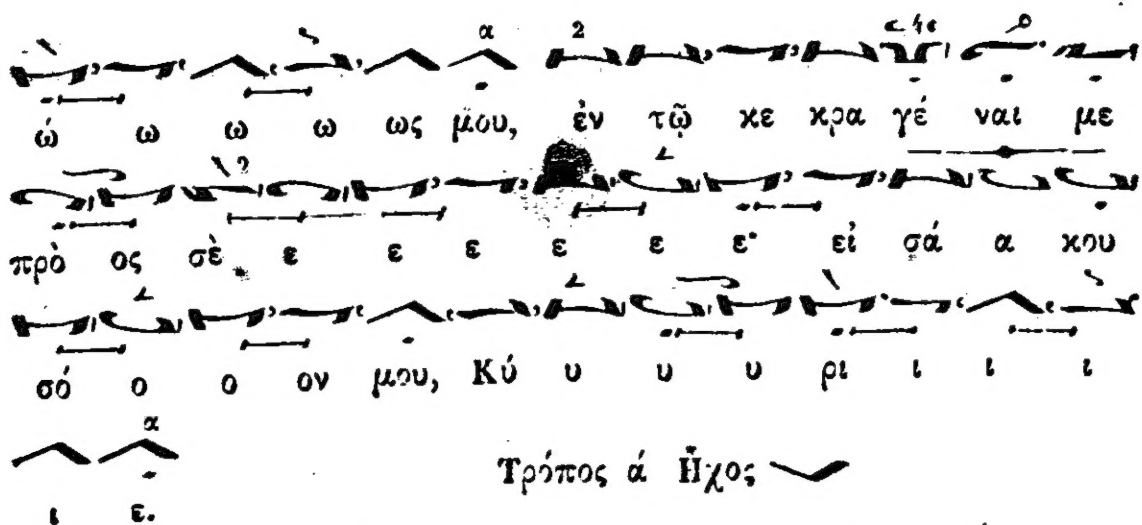 α 2
ώ ω ω ω ως μου, ἐν τῷ κε κρα γέ ναι με
2
πρὸ ος σὲ ε ε ε ε ε ε· εἰ σά α κου
σό ο ο ον μου, Κύ υ υ υ ρι ι ι ι
α
ι ε. Τρόπος ά Ἦχος